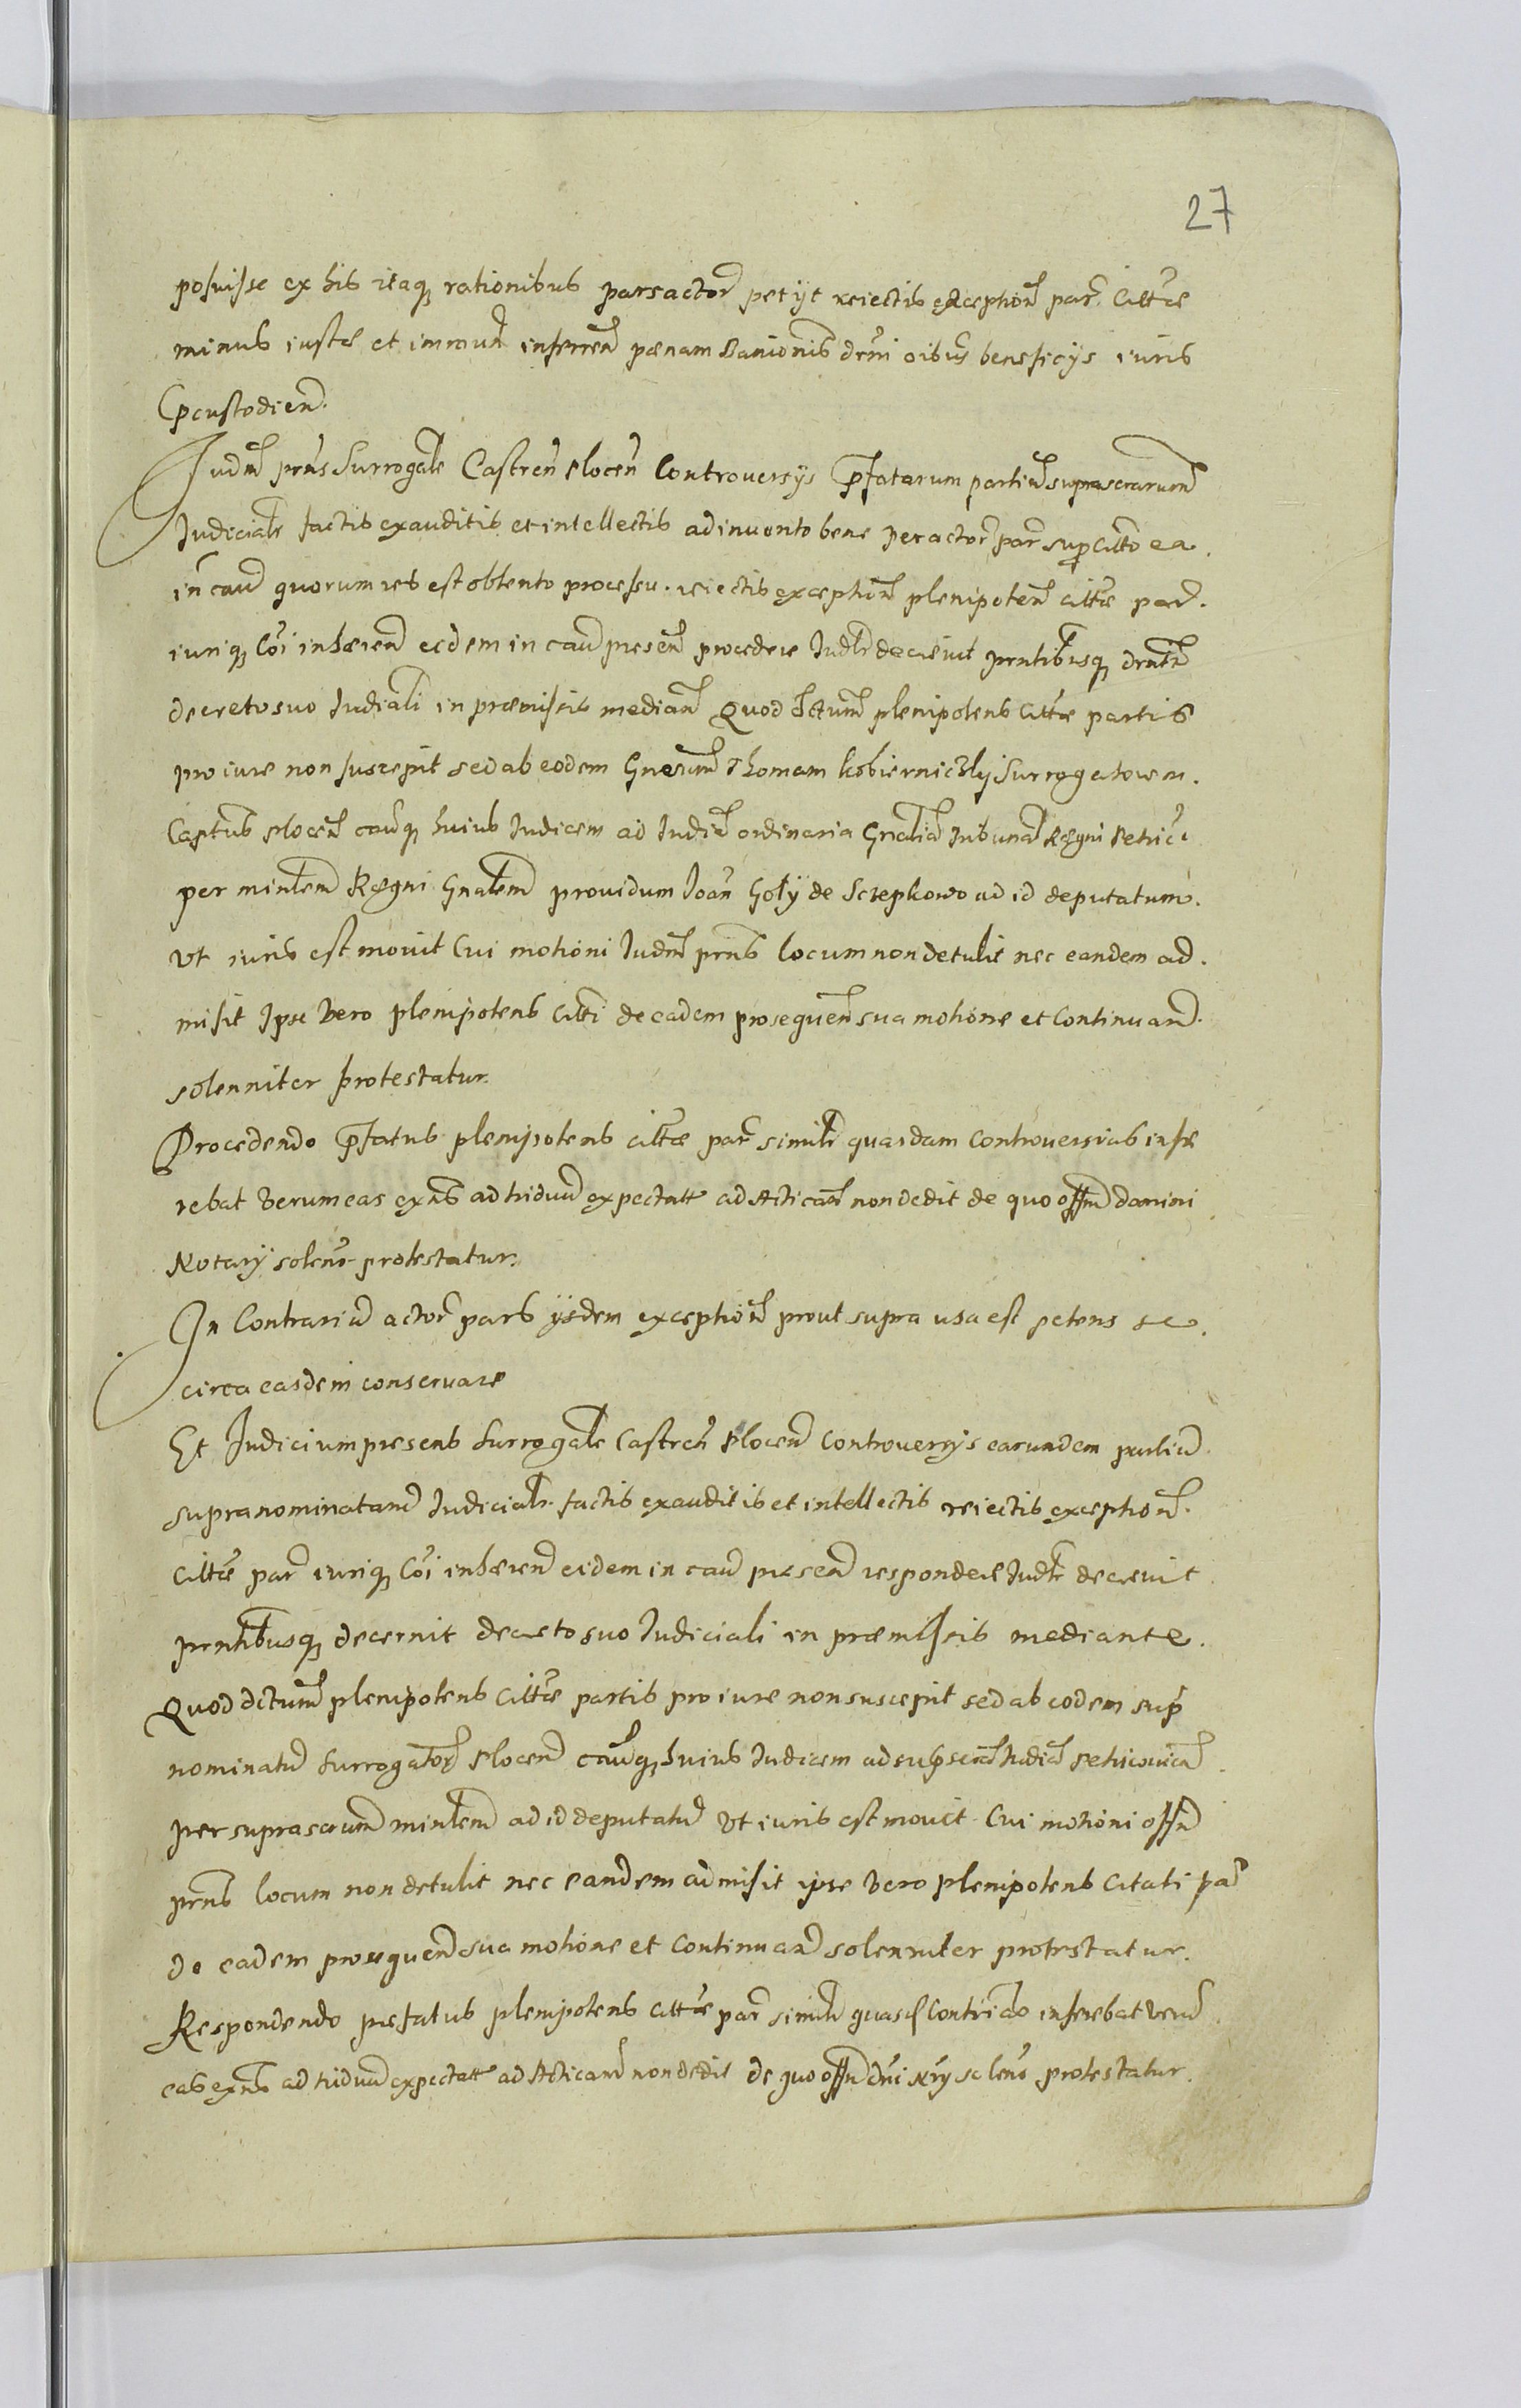 27
posuisse ex his itaq rationibus pars actor petijt reiectis exception par Cittae
minus iuste et inferren paenam Banionis drni oibus beneficijs iuris
pcustodien.
Judm prns Surrogale Castren Plocen Controversijs pfatarum partium suprascrarum
Judicialr factis exauditis et intellectis adinvento bene per actor par super citto ea
in cau quorum res est obtento processu. reiectis exception plenipoten cittae par.
iuriq Coi inhaeren eidem in cau presen procedere Judlr decrevit prntibusq
decreto suo Judiali in praemissis median Quod dctum plenipotens Cittae partis
pro iure non suscepit sed ab eodem Gnerum Thomam Kobiernicky Surrogatorem.
Castrus Plocen cauq huius Judicem ad Judia ordinaria Gnalia Tribunal Regni Petric
per minlem Regni Gnalem providum Joan Goły de Screpkowo ad id deputatum.
Vt iuris est movit Cui motioni Judm prns locum non detulit nec eandem ad
misit Ipse Vero plenipotens Citti de eadem prosequen sua motione et Continuand.
solenniter protestatur.
Procedendo pfatus plenipotens cittae par similr quasdam controversias infe
rebat Verum eas exns ad triduum expectatt ad Acticand non dedit de quo offm domini
Notarij solens protestatur.
In Contrarium actor pars ijsdem exception prout supra usa est petens se
circa easdem conservare
Et Judicium presens Surrogale Castren Plocen Controversijs earundem partium
supranominatarum Judicialr factis exauditis et intellectis reiectis exception.
Cittae par iuriq Coi inhaeren eidem in cau presen respondere Judlr decrevit
prntibusq decernit decreto suo Judiciali in praemissis mediante.
Quod dctum plenipotens Cittae partis pro iure non suscepit sed ab eodem supr
nominatum Surrogator Plocen cauq huius Judicem ad Judic Petricovien
per suprascrum minlem ad id deputatum Vt iuris est movit Cui motioni offm
prns locum non detulit nec eandem admisit ipse Vero plenipotens Citati par
de eadem prosequen sua motione et Continuand solenniter protestatur.
Respondendo prefatus plenipotens cittae par similr quasd inferebat Verum
eas exns ad triduum expectatt ad Acticand non dedit de quo offm dni Nrij solens protestatur.